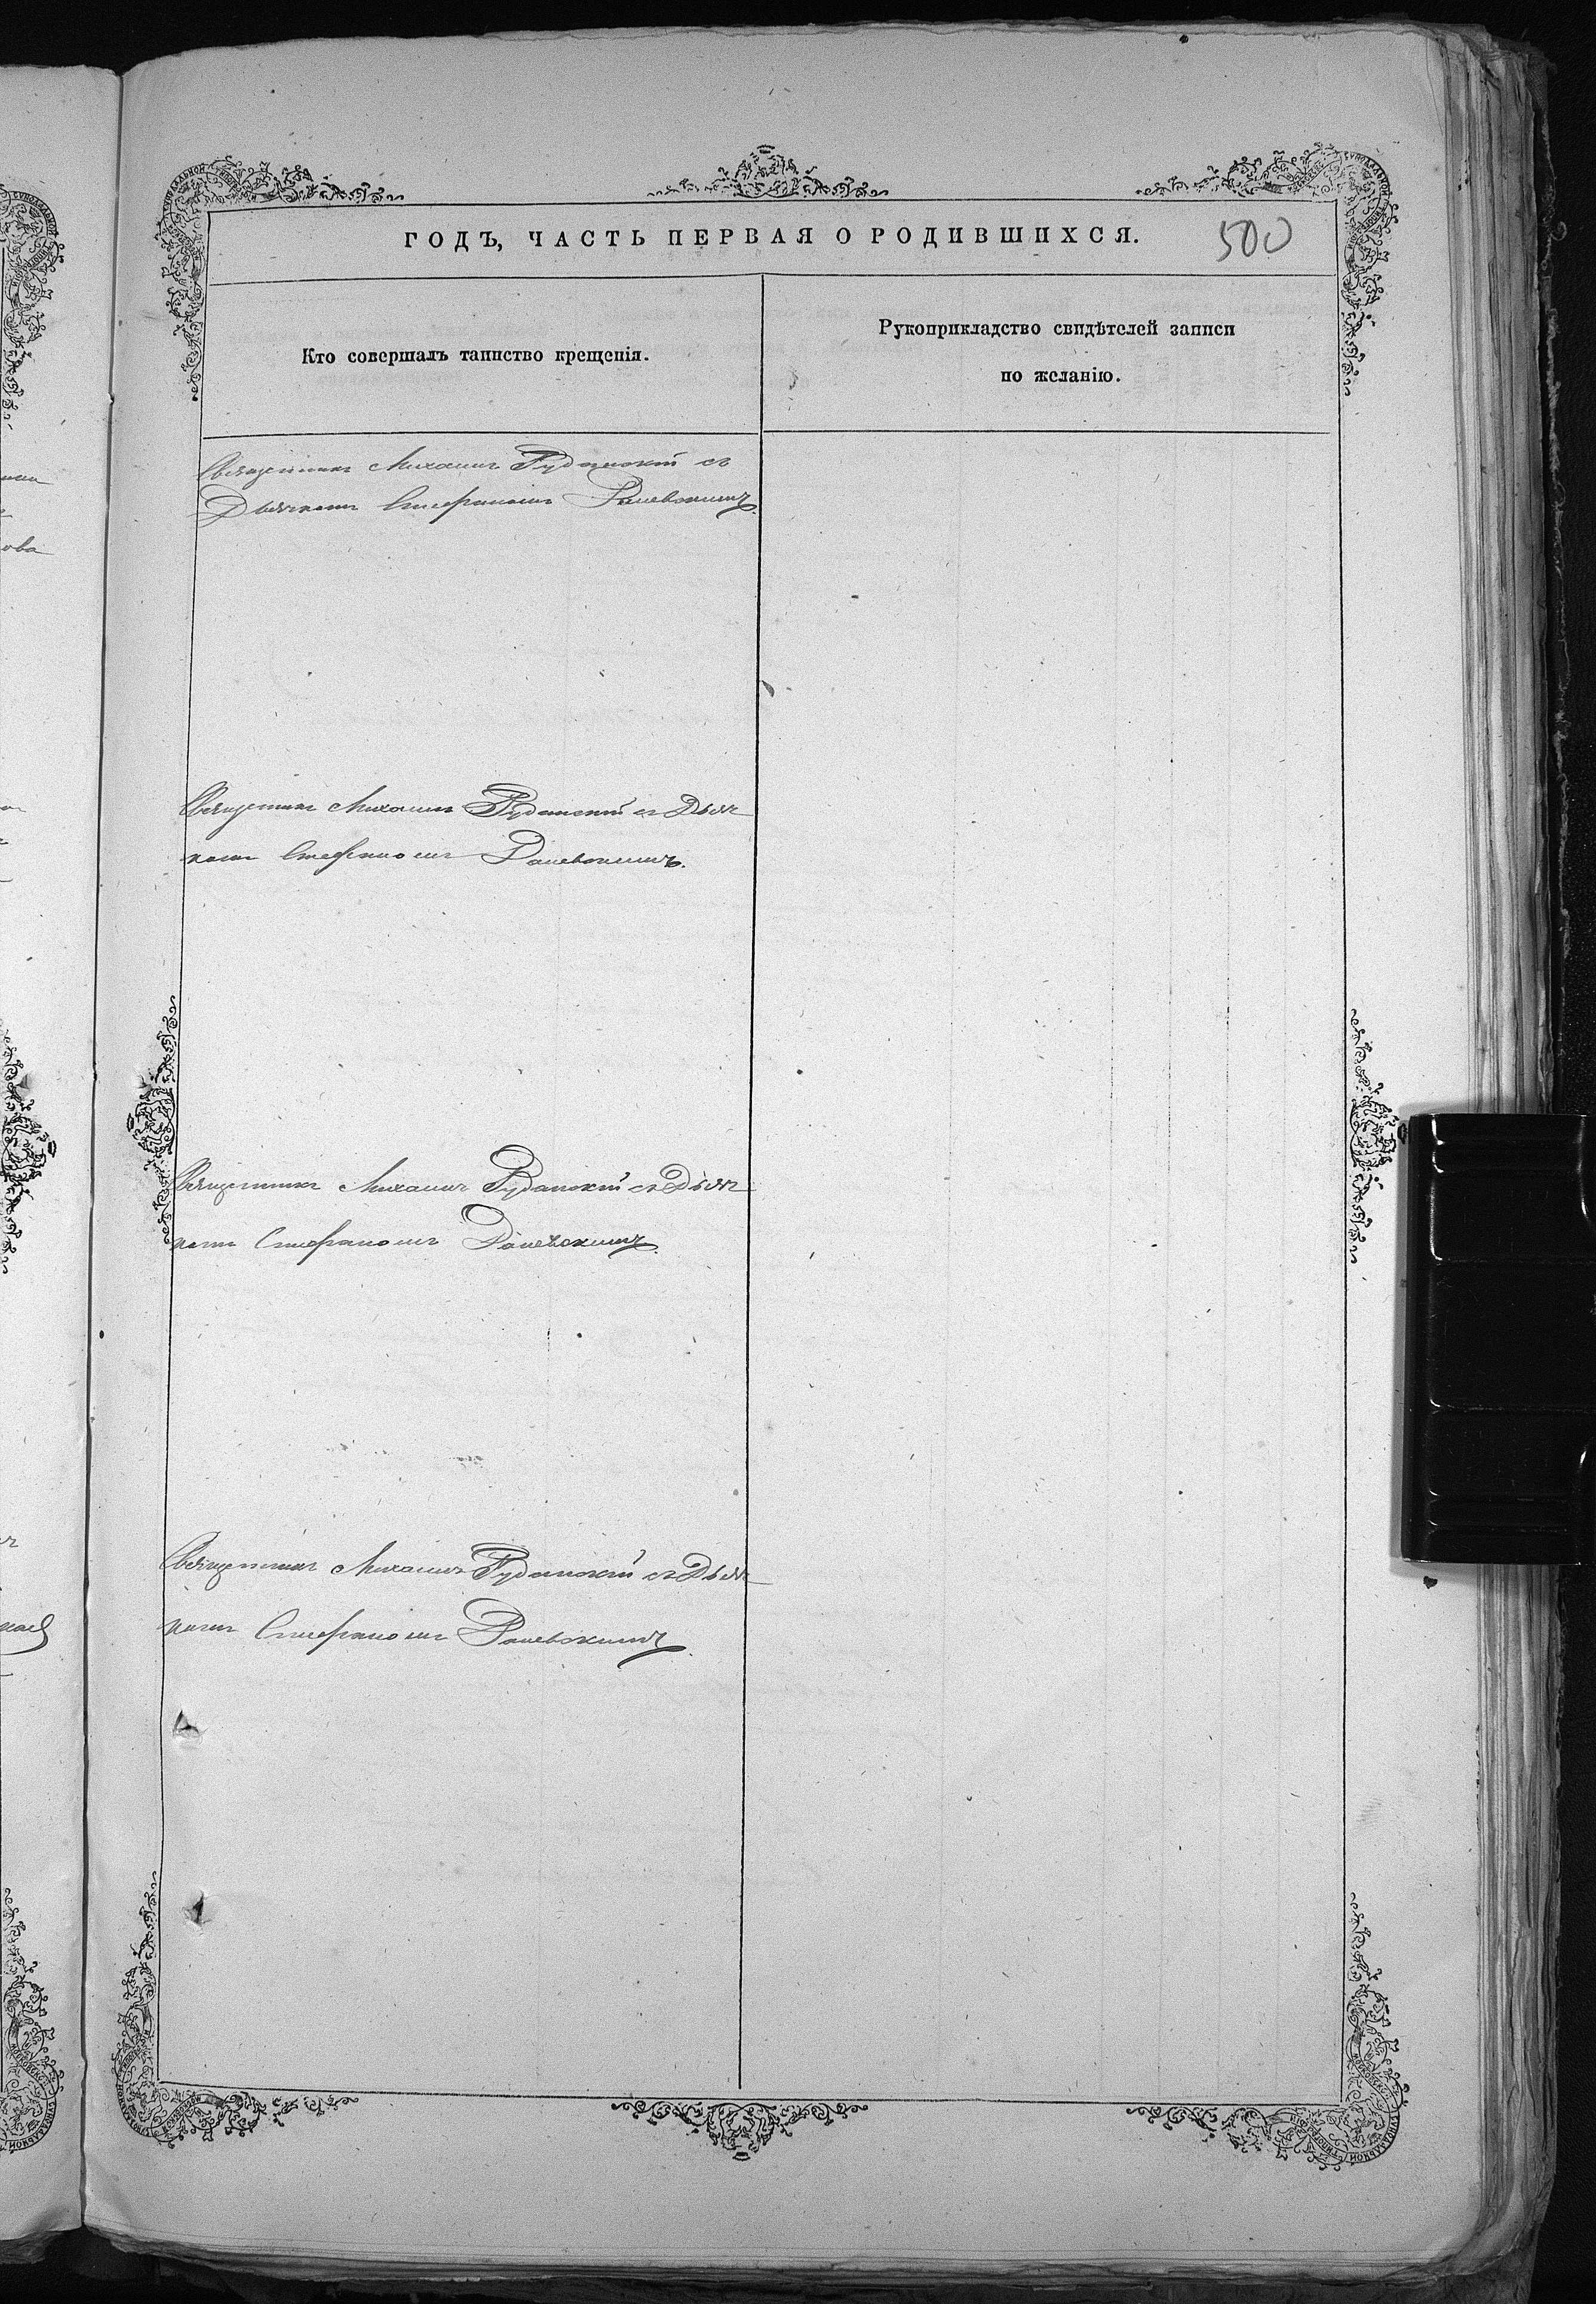 ГОДЪ, ЧАСТЬ ПЕРВАЯ О РОДИВШИХСЯ.
500
Кто совершалъ таинство крещенія.
Рукоприкладство свидѣтелей записи
по желанію.
Священникъ Михаилъ Руданскій съ
Дьячкомъ Стефаномъ Раневскимъ.
Священникъ Михаилъ Руданскій съ Дьяч
комъ Стефаномъ Раневскимъ.
Священникъ Михаилъ Руданскій съ Дьяч
комъ Стефаномъ Раневскимъ.
Священникъ Михаилъ Руданскій съ Дьяч
комъ Стефаномъ Раневскимъ.